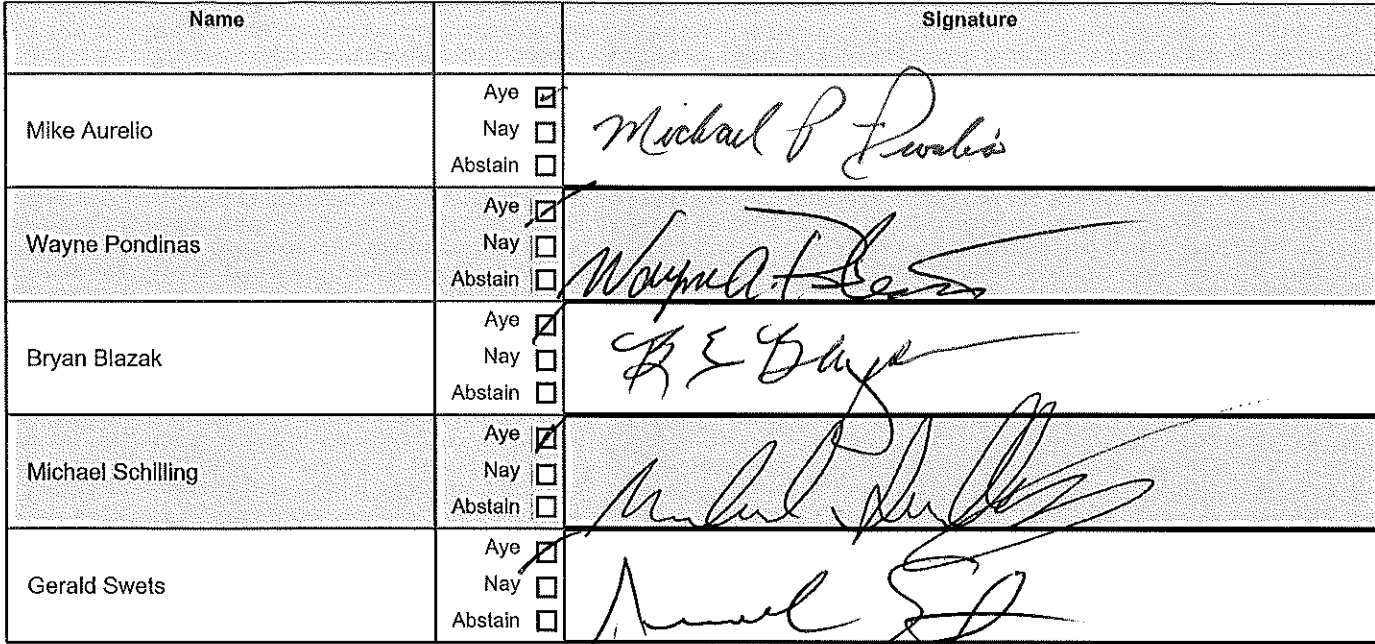 Name Signature
Mike Aurelio
Aye ☑
Nay ☐
Abstain ☐
Michael P
Wayne Pondinas
Aye ☑
Nay ☐
Abstain ☐
Wayne A.
Bryan Blazak
Aye ☑
Nay ☐
Abstain ☐
B E
Michael Schilling
Aye ☑
Nay ☐
Abstain ☐
Gerald Swets
Aye ☑
Nay ☐
Abstain ☐